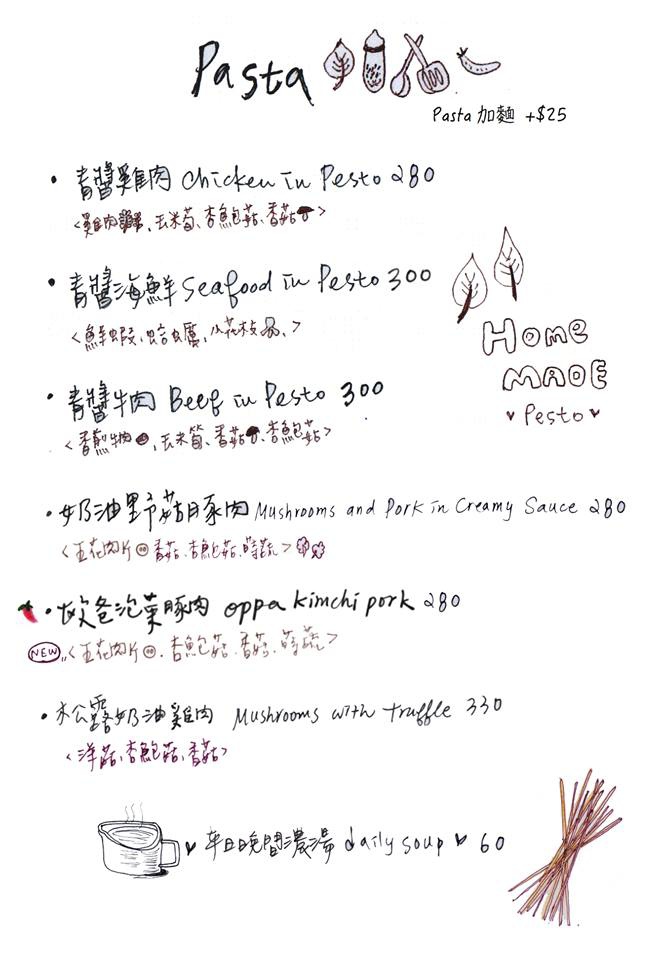 Pasta
Pasta 加麵 +$25
青醬雞肉 Chicken in Pesto 280
<雞肉、玉米筍、杏鮑菇、香菇>
青醬海鮮 Seafood in Pesto 300
<鮮蝦、蛤蠣、小花枝>
青醬牛肉 Beef in Pesto 300
<香煎牛肉、玉米筍、香菇、杏鮑菇>
Home
MADE
Pesto
奶油野菇豚肉 Mushrooms and Pork in Creamy Sauce 280
<五花肉片 香菇、杏鮑菇、時蔬>
歐爸泡菜豚肉 oppa kimchi pork 280
NEW <五花肉片、杏鮑菇、香菇、時蔬>
松露奶油雞肉 Mushrooms with truffle 330
<洋菇、杏鮑菇、香菇>
平日晚間濃湯 daily soup 60